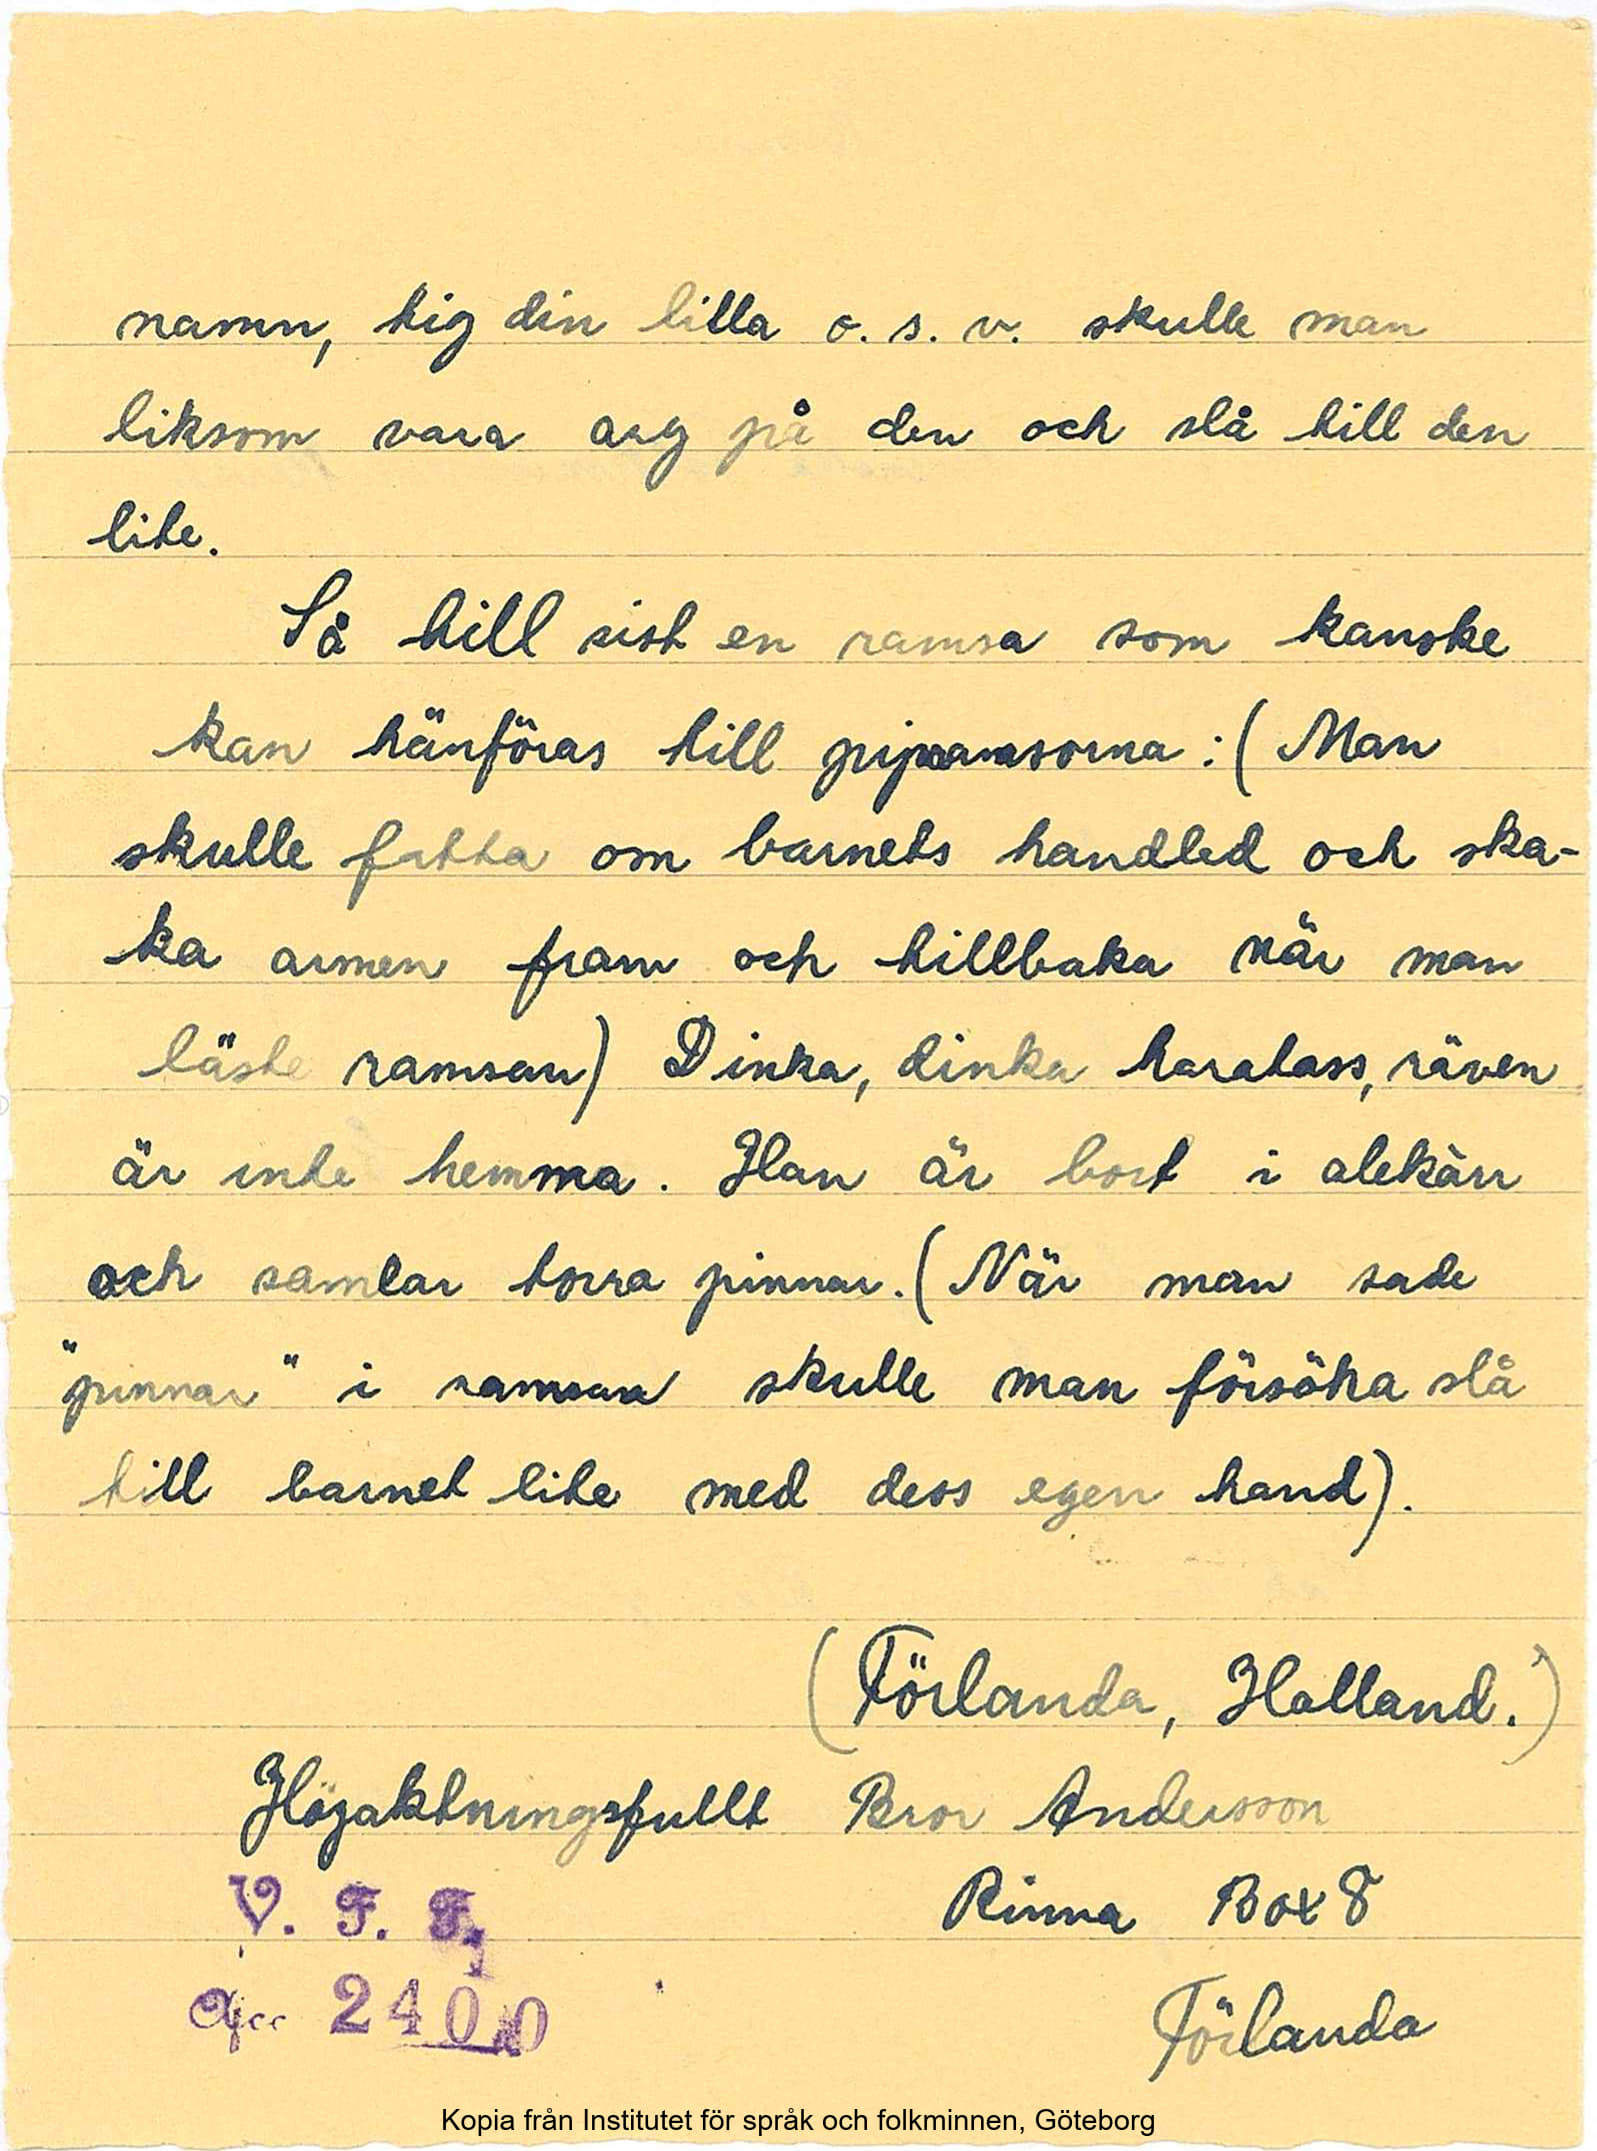 namn, tig din lilla o. s. v. skulle man
liksom vara arg på den och slå till den
lite.
Så till sist en ramsa som kanske
kan hänföras till pipramsorna: (Man
skulle fatta om barnets handled och ska-
ka armen fram och tillbaka när man
läste ramsan) Dinka, dinka haratass, räven
är inte hemma. Han är bort i alekärr
och samlar torra pinnar. (När man sade
"pinnar" i ramsan skulle man försöka slå
till barnet lite med dess egen hand).
(Förlanda, Halland.)
Högaktningsfullt Bror Andersson
V. F. F. Rinna Box 8
Acc 2400 Förlanda
Kopia från Institutet för språk och folkminnen, Göteborg